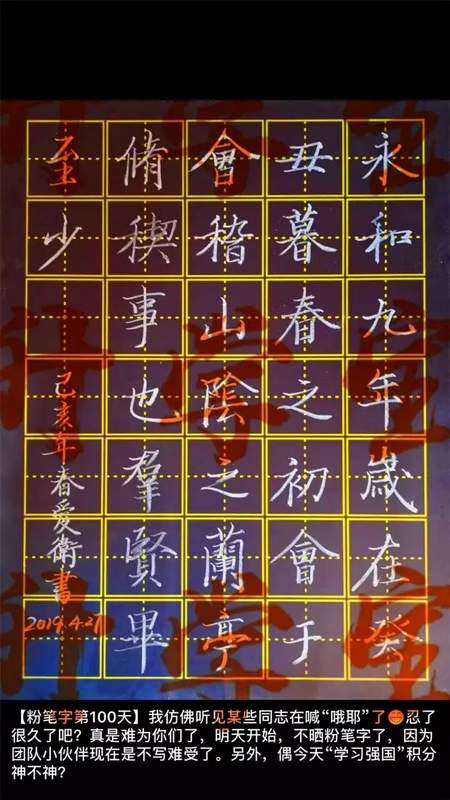 永和九年歲在癸
丑暮春之初會于
會稽山陰之蘭亭
脩稧事也羣賢畢
至少
己亥年春愛衛書
2019.4.21
【粉笔字第100天】我仿佛听见某些同志在喊“哦耶”了😊忍了
很久了吧？真是难为你们了，明天开始，不晒粉笔字了，因为
团队小伙伴现在是不写难受了。另外，偶今天“学习强国”积分
神不神？